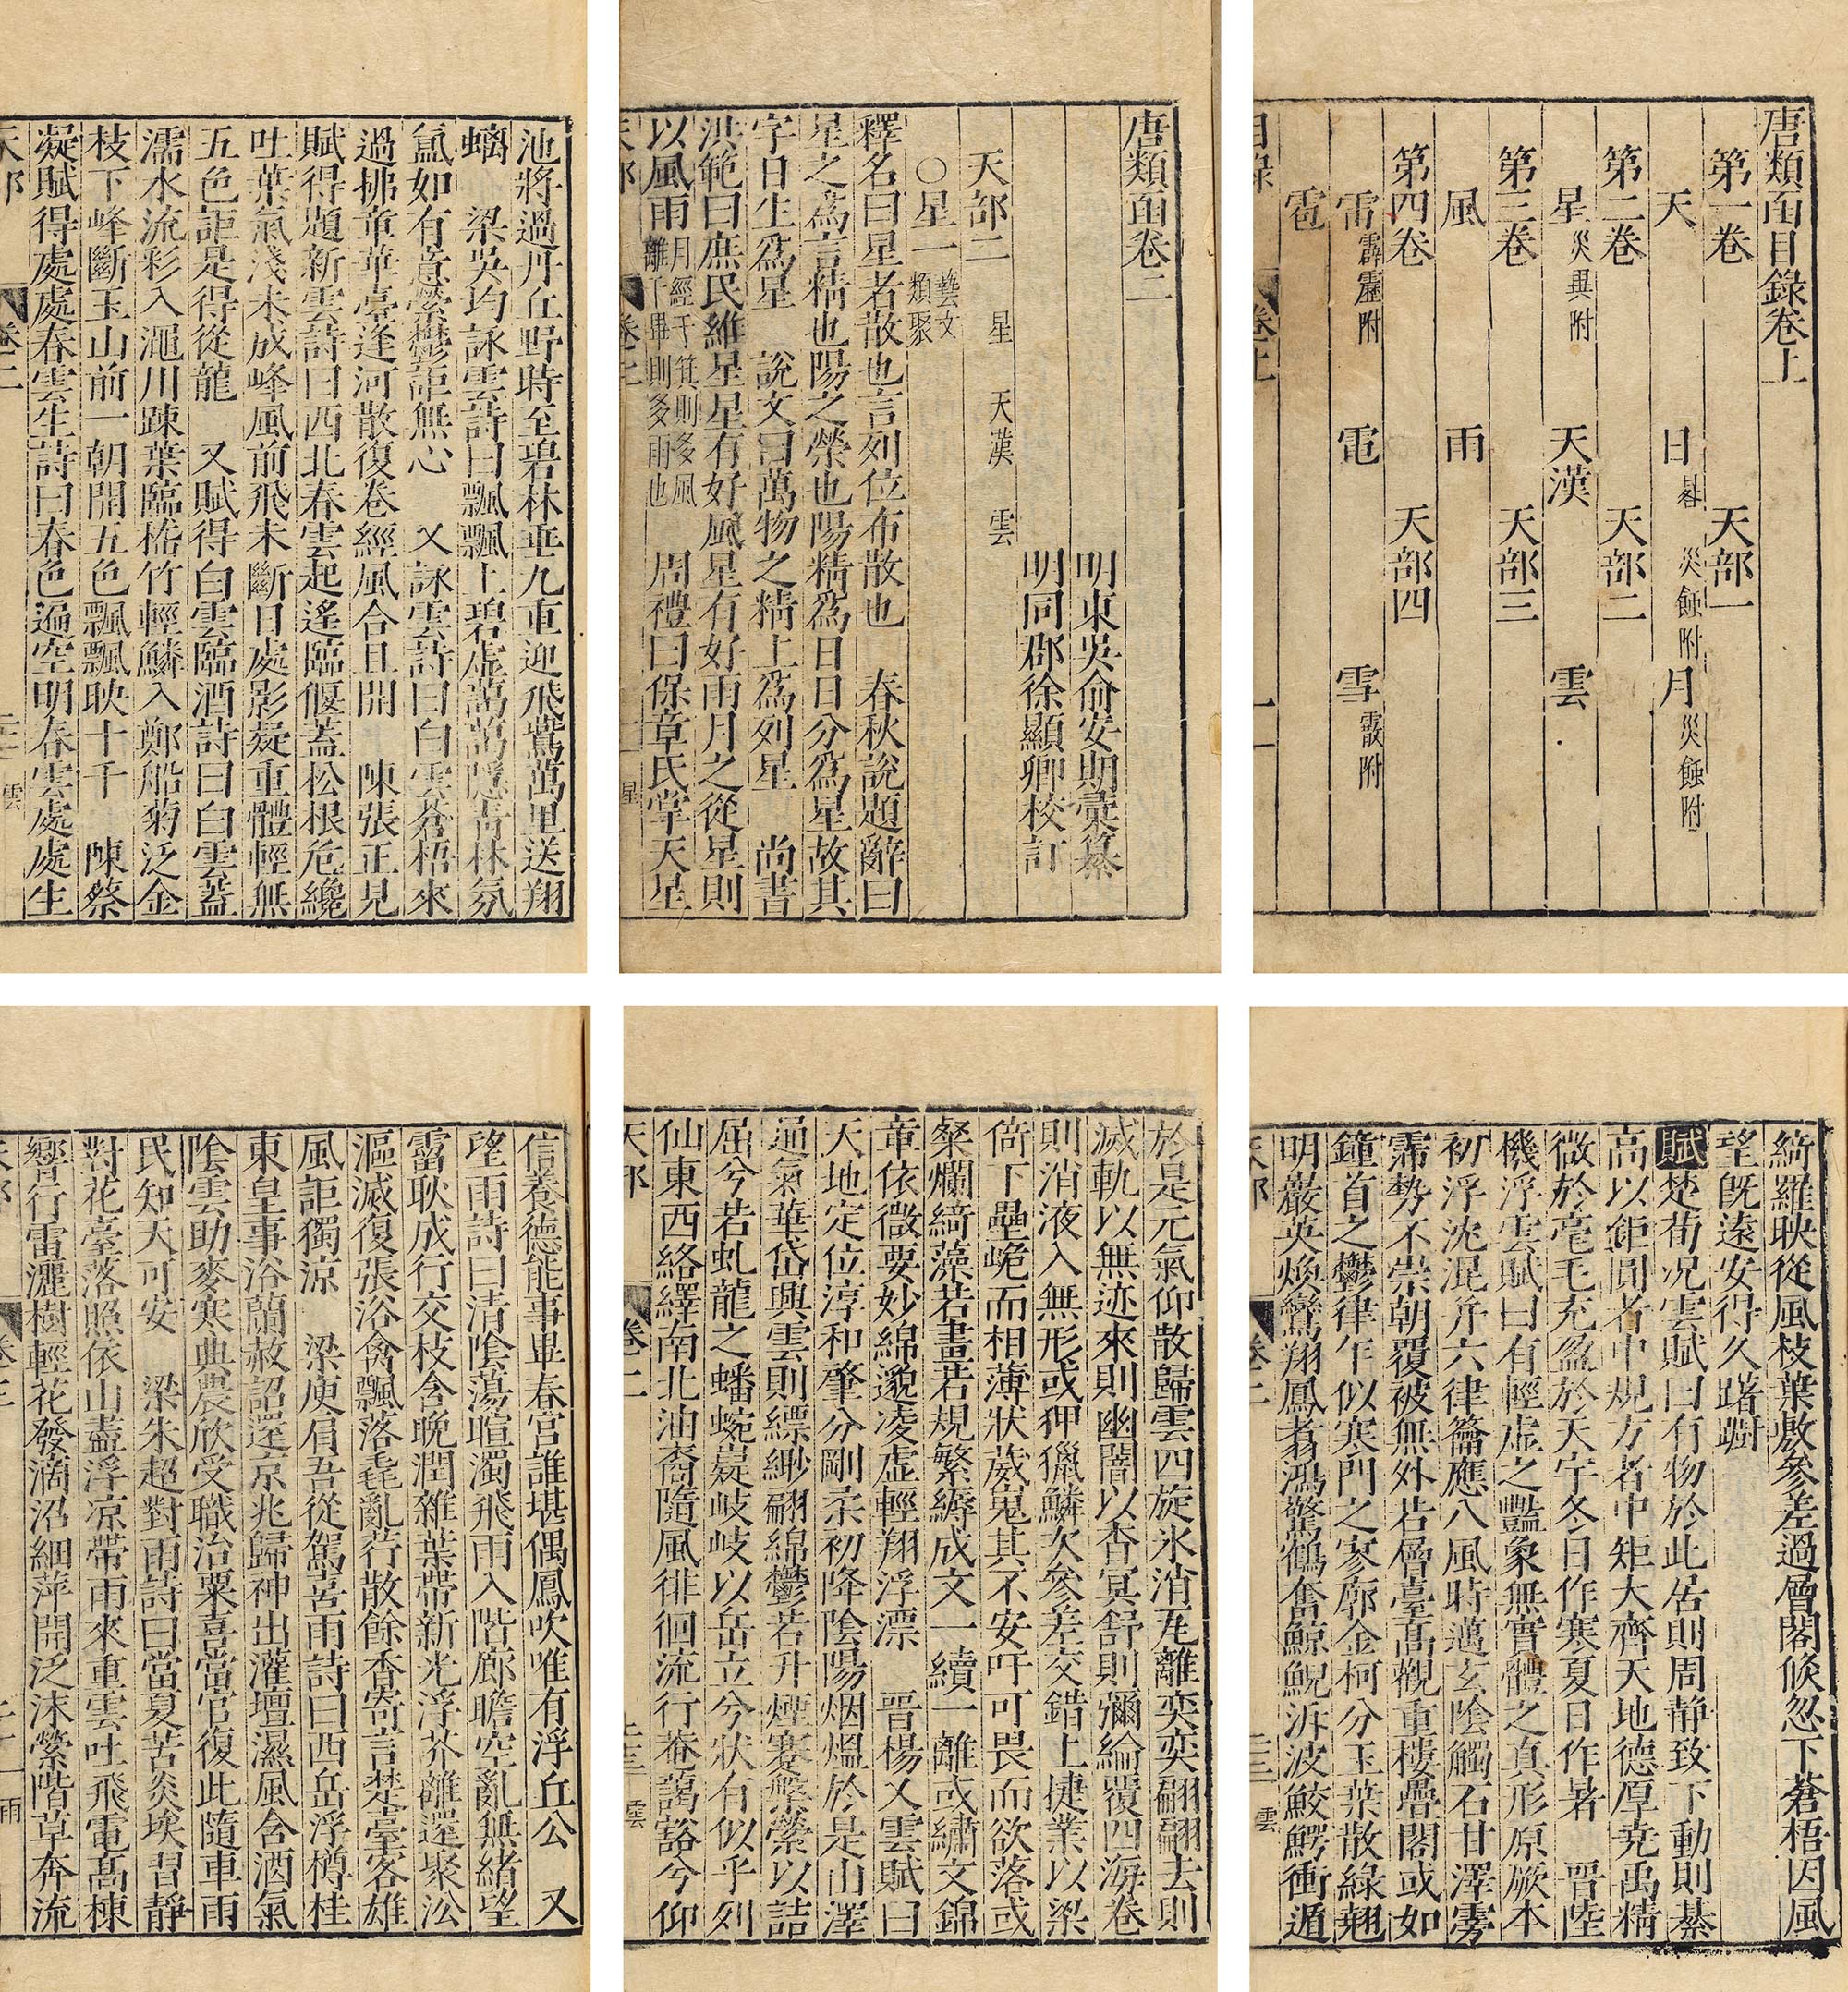 唐類函目錄卷上
第一卷 天部一
天 日晷 災蝕附 月災蝕附
第二卷 天部二
星災異附 天漢 雲
第三卷 天部三
風 雨
第四卷 天部四
雷霹靂附 電 雪霰附
雹
目錄 卷上 一
唐類函卷二
明東吳俞安期彙纂
明同郡徐顯卿校訂
天部二 星 天漢 雲
○星一 藝文類聚
釋名曰星者散也言列位布散也 春秋說題辭曰
星之爲言精也陽之榮也陽精爲日日分爲星故其
字日生爲星 說文曰萬物之精上爲列星 尚書
洪範曰庶民維星星有好風星有好雨月之從星則
以風雨月經于箕則多風離于畢則多雨也 周禮曰保章氏掌天星
天部 卷之 一 星
池將過丹丘野時至碧林垂九重迎飛鷰萬里送翔
螭 梁吳均詠雲詩曰飄飄上碧虛藹藹隱青林氛
氳如有意縈鬱詎無心 又詠雲詩曰白雲蒼梧來
過拂章華臺逢河散復卷經風合且開 陳張正見
賦得題新雲詩曰西北春雲起遙臨偃蓋松根危纔
吐葉氣淺未成峰風前飛未斷日處影凝重體輕無
五色詎是得從龍 又賦得白雲臨酒詩曰白雲蓋
濡水流彩入澠川疎葉臨嵇竹輕鱗入鄭船菊泛金
枝下峰斷玉山前一朝開五色飄飄映十千 陳蔡
凝賦得處處春雲生詩曰春色遍空明春雲處處生
天部 卷二 二十二 雲
綺羅映從風枝葉敷參差過層閣倏忽下蒼梧因風
望既遠安得久踟躕
賦楚荀况雲賦曰有物於此居則周靜致下動則綦
高以鉅圓者中規方者中矩大齊天地德厚堯禹精
微於毫毛充盈於天宇冬日作寒夏日作暑 晉陸
機浮雲賦曰有輕虛之豔象無實體之真形原厥本
初浮沈混并六律籥應八風時邁玄陰觸石甘澤霶
霈勢不崇朝覆被無外若層臺高觀重樓疊閣或如
鐘首之鬱律乍似寒門之寥廓金柯分玉葉散綠翹
明巖英煥鸞翔鳳翥鴻驚鶴奮鯨鯢泝波鮫鰐衝遁
天部 卷二 二十三 雲
於是元氣仰散歸雲四旋氷消瓦離奕奕翩翩去則
滅軌以無迹來則幽闇以杳冥舒則彌綸覆四海卷
則消液入無形或狎獵鱗次參差交錯上捷業以梁
倚下壘峗而相薄狀葳嵬其不安吁可畏而欲落或
粲爛綺藻若畫若規繁縟成文一續一離或繡文錦
章依微要妙綿邈凌虛輕翔浮漂 晉楊乂雲賦曰
天地定位淳和肇分剛柔初降陰陽烟熅於是山澤
通氣華岱興雲則縹緲翩綿鬱若升煙蹇槃縈以詰
屈兮若虬龍之蟠蜿嵏岐岐以岳立兮狀有似乎列
仙東西絡繹南北油裔隨風徘徊流行菴藹豁兮仰
天部 卷二 二十三 雲
信養德能事畢春宮誰堪偶鳳吹唯有浮丘公 又
望雨詩曰清陰蕩暄濁飛雨入階廊瞻空亂無緒望
霤耿成行交枝含晚潤雜葉帶新光浮芥離還聚沿
漚滅復張浴禽飄落毳亂荇散餘香寄言楚臺客雄
風詎獨涼 梁庾肩吾從駕苦雨詩曰西岳浮樽桂
東皇事浴蘭赦詔還京兆歸神出灌壇濕風含酒氣
陰雲助麥寒典農欣受職治粟喜當官復此隨車雨
民知天可安 梁朱超對雨詩曰當夏苦炎埃習靜
對花臺落照依山盡浮凉帶雨來重雲吐飛電高棟
響行雷灑樹輕花發滴沼細萍開泛沫縈階草奔流
天部 卷三 二十一 雨